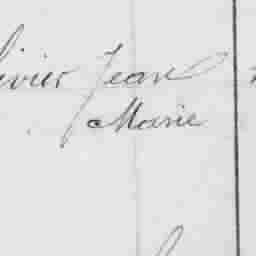 livier Jean
Marie